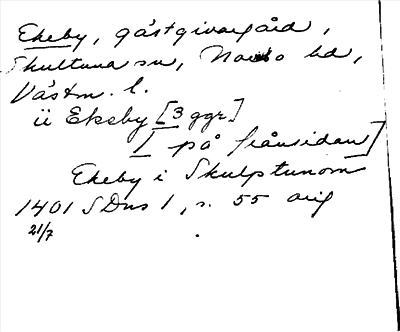 Ekeby, gästgivargård,
Skultuna sn, Norbo hd,
Västm. l.
ü Ekeby [3 ggr]
[ på frånsidan]
Ekeby i Skulptunom
1401 SDns 1, s. 55 orig
21/7